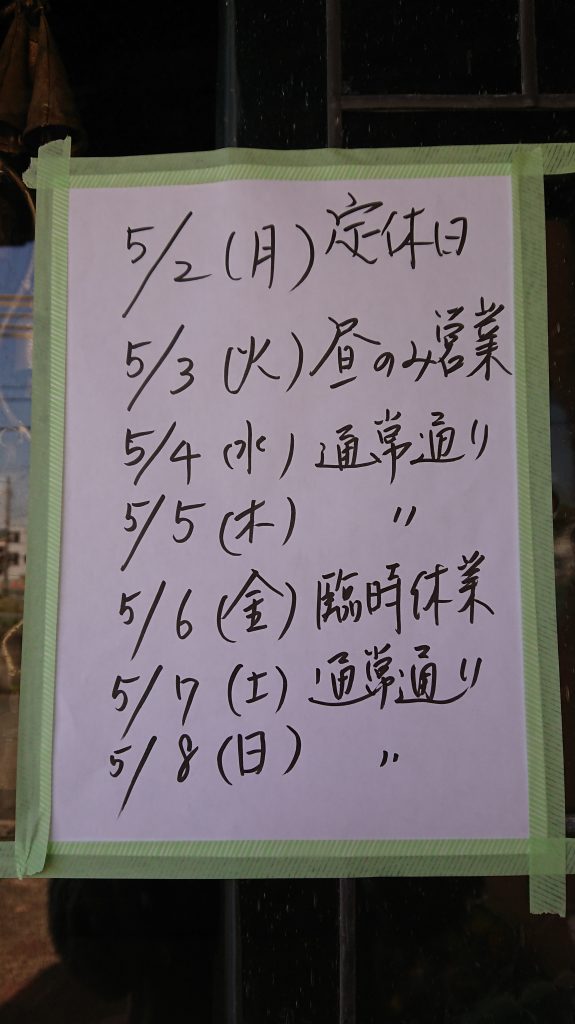 5/2(月)定休日
5/3(火)昼のみ営業
5/4(水)通常通り
5/5(木) 〃
5/6(金)臨時休業
5/7(土)通常通り
5/8(日) 〃